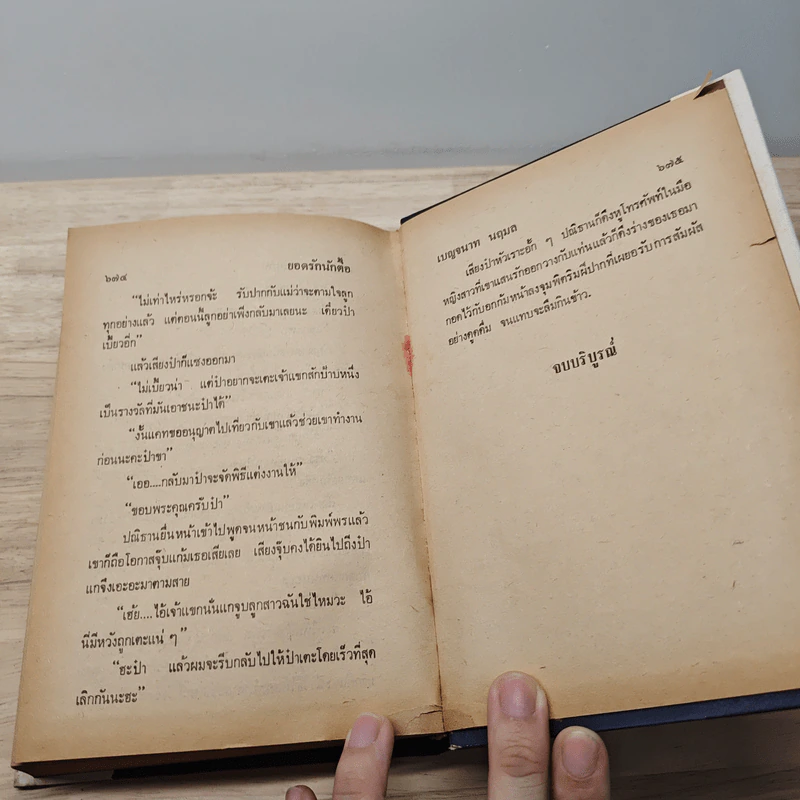 ๖๗๔ ยอดรักนักตื๊อ
“ไม่เท่าไหร่หรอกจ้ะ รับปากกับแม่ว่าจะตามใจลูก
ทุกอย่างแล้ว แต่ตอนนี้ลูกอย่าเพิ่งกลับมาเลยนะ เดี๋ยวป๋า
เบี้ยวอีก”
แล้วเสียงป๋าก็แซงออกมา
“ไม่เบี้ยวน่า แต่ป๋าอยากจะเตะเจ้าแขกสักป๊าบหนึ่ง
เป็นรางวัลที่มันเอาชนะป๋าได้”
“งั้นแคทขออนุญาตไปเที่ยวกับเขาแล้วช่วยเขาทำงาน
ก่อนนะคะป๋าขา”
“เออ....กลับมาป๋าจะจัดพิธีแต่งงานให้”
“ขอบพระคุณครับป๋า”
ปณิธานยื่นหน้าเข้าไปพูดจนหน้าชนกับพิมพ์พรแล้ว
เขาก็ถือโอกาสจุ๊บแก้มเธอเสียเลย เสียงจุ๊บคงได้ยินไปถึงป๋า
แกจึงเอะอะมาตามสาย
“เฮ้ย....ไอ้เจ้าแขกนั่นแกจูบลูกสาวฉันใช่ไหมวะ ไอ้
นี่มีหวังถูกเตะแน่ ๆ”
“ฮะป๋า แล้วผมจะรีบกลับไปให้ป๋าเตะโดยเร็วที่สุด
เลิกกันนะฮะ”
๖๗๕
เบญจนาท นฤมล
เสียงป๋าหัวเราะอั้ก ๆ ปณิธานก็ดึงหูโทรศัพท์ในมือ
หญิงสาวที่เขาแสนรักออกวางกับแท่นแล้วก็ดึงร่างของเธอมา
กอดไว้กับอกก้มหน้าลงจุมพิตริมฝีปากที่เผยอรับการสัมผัส
อย่างดูดดื่ม จนแทบจะลืมกินข้าว.
จบบริบูรณ์